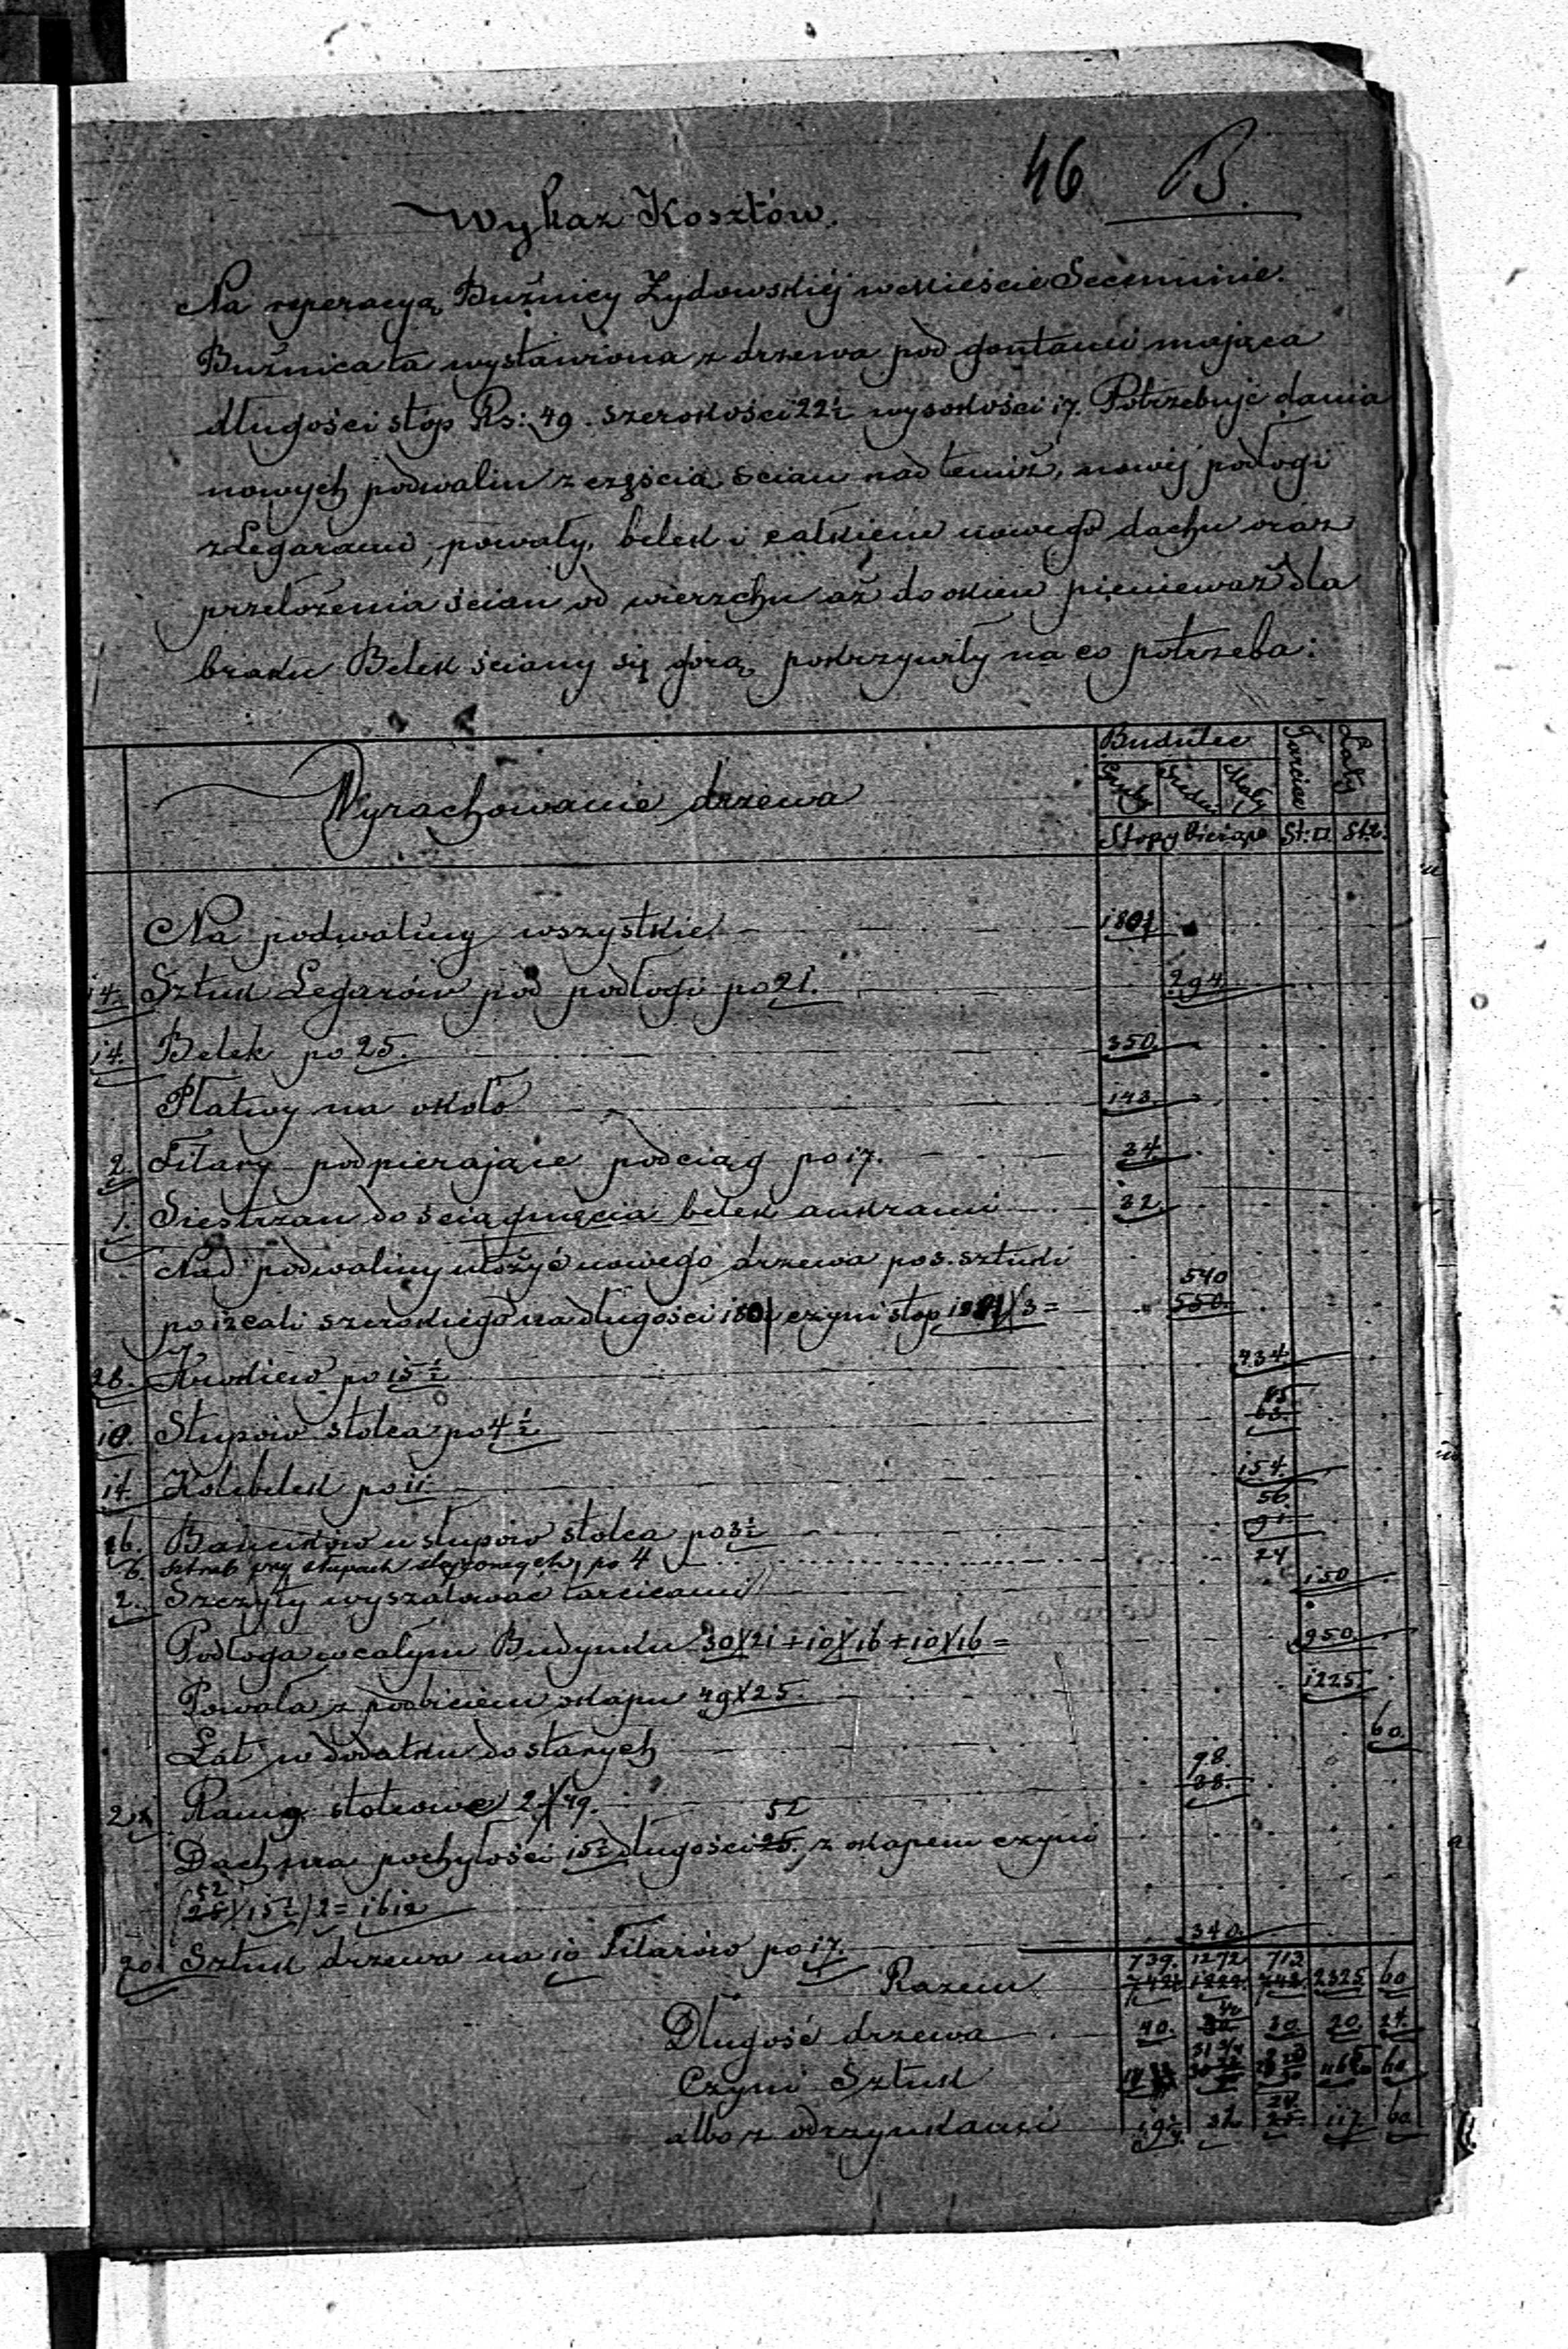 46 B.
Wykaz Kosztów.
Na reperacyą Bużnicy Żydowskiéj w mieście Seceminie.
Bużnica ta wystawiona z drzewa pod gontami mająca
długości stóp Rs: 49. szerokości 22½ wysokości 17. Potrzebuje dania
nowych podwalin z częścią ścian nad temiż, nowéj podłogi
z Legarami, powały, belek i całkiem nowego dachu oraz
przełożenia ścian od wierzchu aż do okien pieniewaź dla
braku Belek ściany się górą pokrzywiły na co potrzeba:
Wyrachowanie drzewa Budulec Tarcice Łaty
Gruby Średni Mały
Stopy bieżące St: □ Szt:
Na podwaliny wszystkie 180
14. Sztuk Legarów pod podłogi po 21. 294.
14. Belek po 25. 350.
Płatwy na około 143.
2. Filary podpierające podciąg po 17. 34.
1. Siestrzan do ściągnięcia belek ankrami 32.
Nad podwaliny ułożyć nowego drzewa po 3. sztuki
po 12 cali szerokiego na długości 180 czyni stop 180 X 3 = 540 550.
28. Krokiew po 15½ 434.
10. Słupów stolca po 4½ 45 63.
14. Kolebelek po 11. 154.
16. Bancików u słupów stolca po 3½ 56. 91
6. sztreb przy słupach po 4 24
2. Szczyty wyszalować tarcicami 150
Podłoga w całym Budynku 30X21 + 10X16 + 10X16 = 950.
Powała z podbiciem okapu 49X25. 1225.
Łat w dodatku do starych 60.
2. Ramy stolcowe 2X49. 98. 88.
Dach ma pochyłości 15½ długości 25. 52 z okapem czyni
(52 25 X 15½) 2 = 1612
20. Sztuk drzewa na 10 Filarów po 17. 340.
Razem 739. 1272 713 2325 60
Długość drzewa 40. 40 30. 20. 24.
Czyni Sztuk 60
albo z odrzynkami 19½ 32 24. 25 117. 60